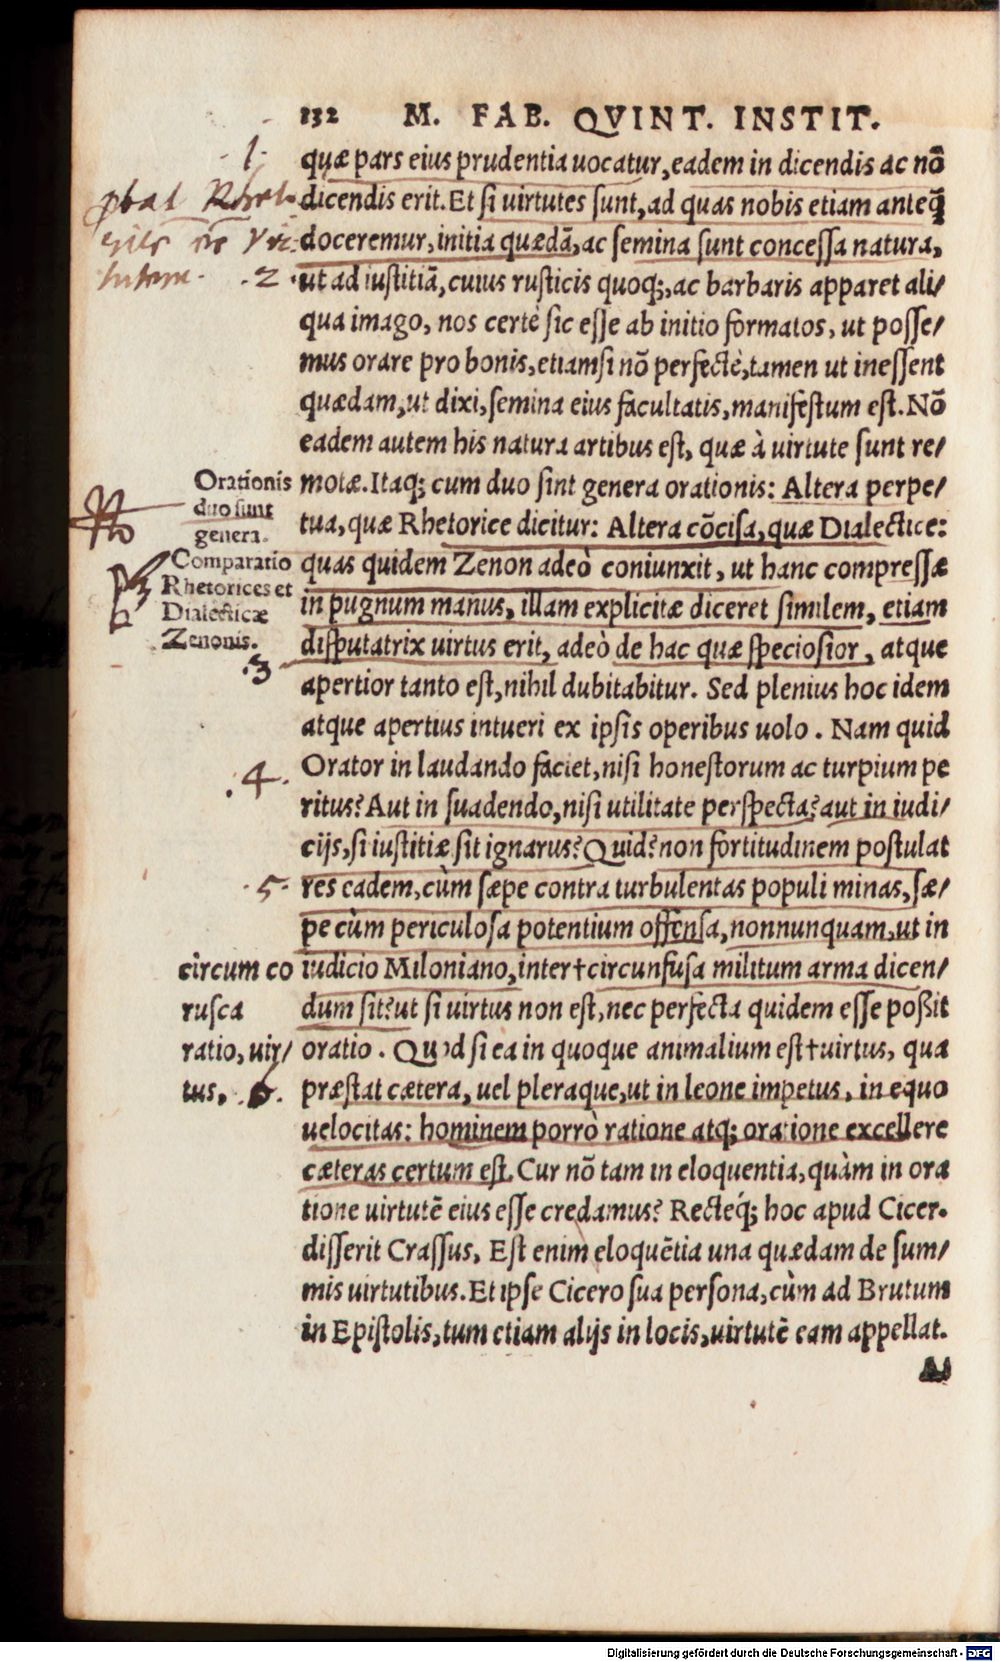 132 M. FAB. QVINT. INSTIT.
quæ pars eius prudentia uocatur, eadem in dicendis ac nō
dicendis erit. Et si uirtutes sunt, ad quas nobis etiam anteq̃
doceremur, initia quædā, ac semina sunt concessa natura,
ut ad iustitiā, cuius rusticis quoq;, ac barbaris apparet ali/
qua imago, nos certè sic esse ab initio formatos, ut posse/
mus orare pro bonis, etiamsi nō perfectè, tamen ut inessent
quædam, ut dixi, semina eius facultatis, manifestum est. Nō
eadem autem his natura artibus est, quæ à uirtute sunt re/
motæ. Itaq; cum duo sint genera orationis: Altera perpe/
tua, quæ Rhetorice dicitur: Altera cōcisa, quæ Dialectice:
quas quidem Zenon adeò coniunxit, ut hanc compressæ
in pugnum manus, illam explicitæ diceret similem, etiam
disputatrix uirtus erit, adeò de hac quæ speciosior, atque
apertior tanto est, nihil dubitabitur. Sed plenius hoc idem
atque apertius intueri ex ipsis operibus uolo. Nam quid
Orator in laudando faciet, nisi honestorum ac turpium pe
ritus? Aut in suadendo, nisi utilitate perspecta? aut in iudi/
cijs, si iustitiæ sit ignarus? Quid? non fortitudinem postulat
res eadem, cùm sæpe contra turbulentas populi minas, sæ/
pe cùm periculosa potentium offensa, nonnunquam, ut in
iudicio Miloniano, inter†circunfusa militum arma dicen/
dum sit? ut si uirtus non est, nec perfecta quidem esse poßit
oratio. Quod si ea in quoque animalium est†uirtus, qua
præstat cætera, uel pleraque, ut in leone impetus, in equo
uelocitas: hominem porrò ratione atq; oratione excellere
cæteras certum est. Cur nō tam in eloquentia, quàm in ora
tione uirtutē eius esse credamus? Recteq́; hoc apud Cicer.
disserit Crassus, Est enim eloquētia una quædam de sum/
mis uirtutibus. Et ipse Cicero sua persona, cùm ad Brutum
in Epistolis, tum etiam alijs in locis, uirtutē eam appellat.
.1.
.2.
Orationis
duo sunt
genera.
Comparatio
Rhetorices et
Dialecticæ
Zenonis.
.3
.4.
.5.
circum co
rusca
ratio, uir/
tus, .6.
Digitalisierung gefördert durch die Deutsche Forschungsgemeinschaft - DFG